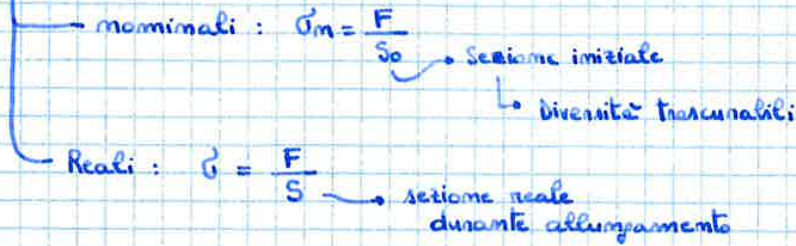 nominali : σn = F/S0 → Sezione iniziale
↳ Diversità trascurabili
Reali : σ = F/S → sezione reale
durante allungamento